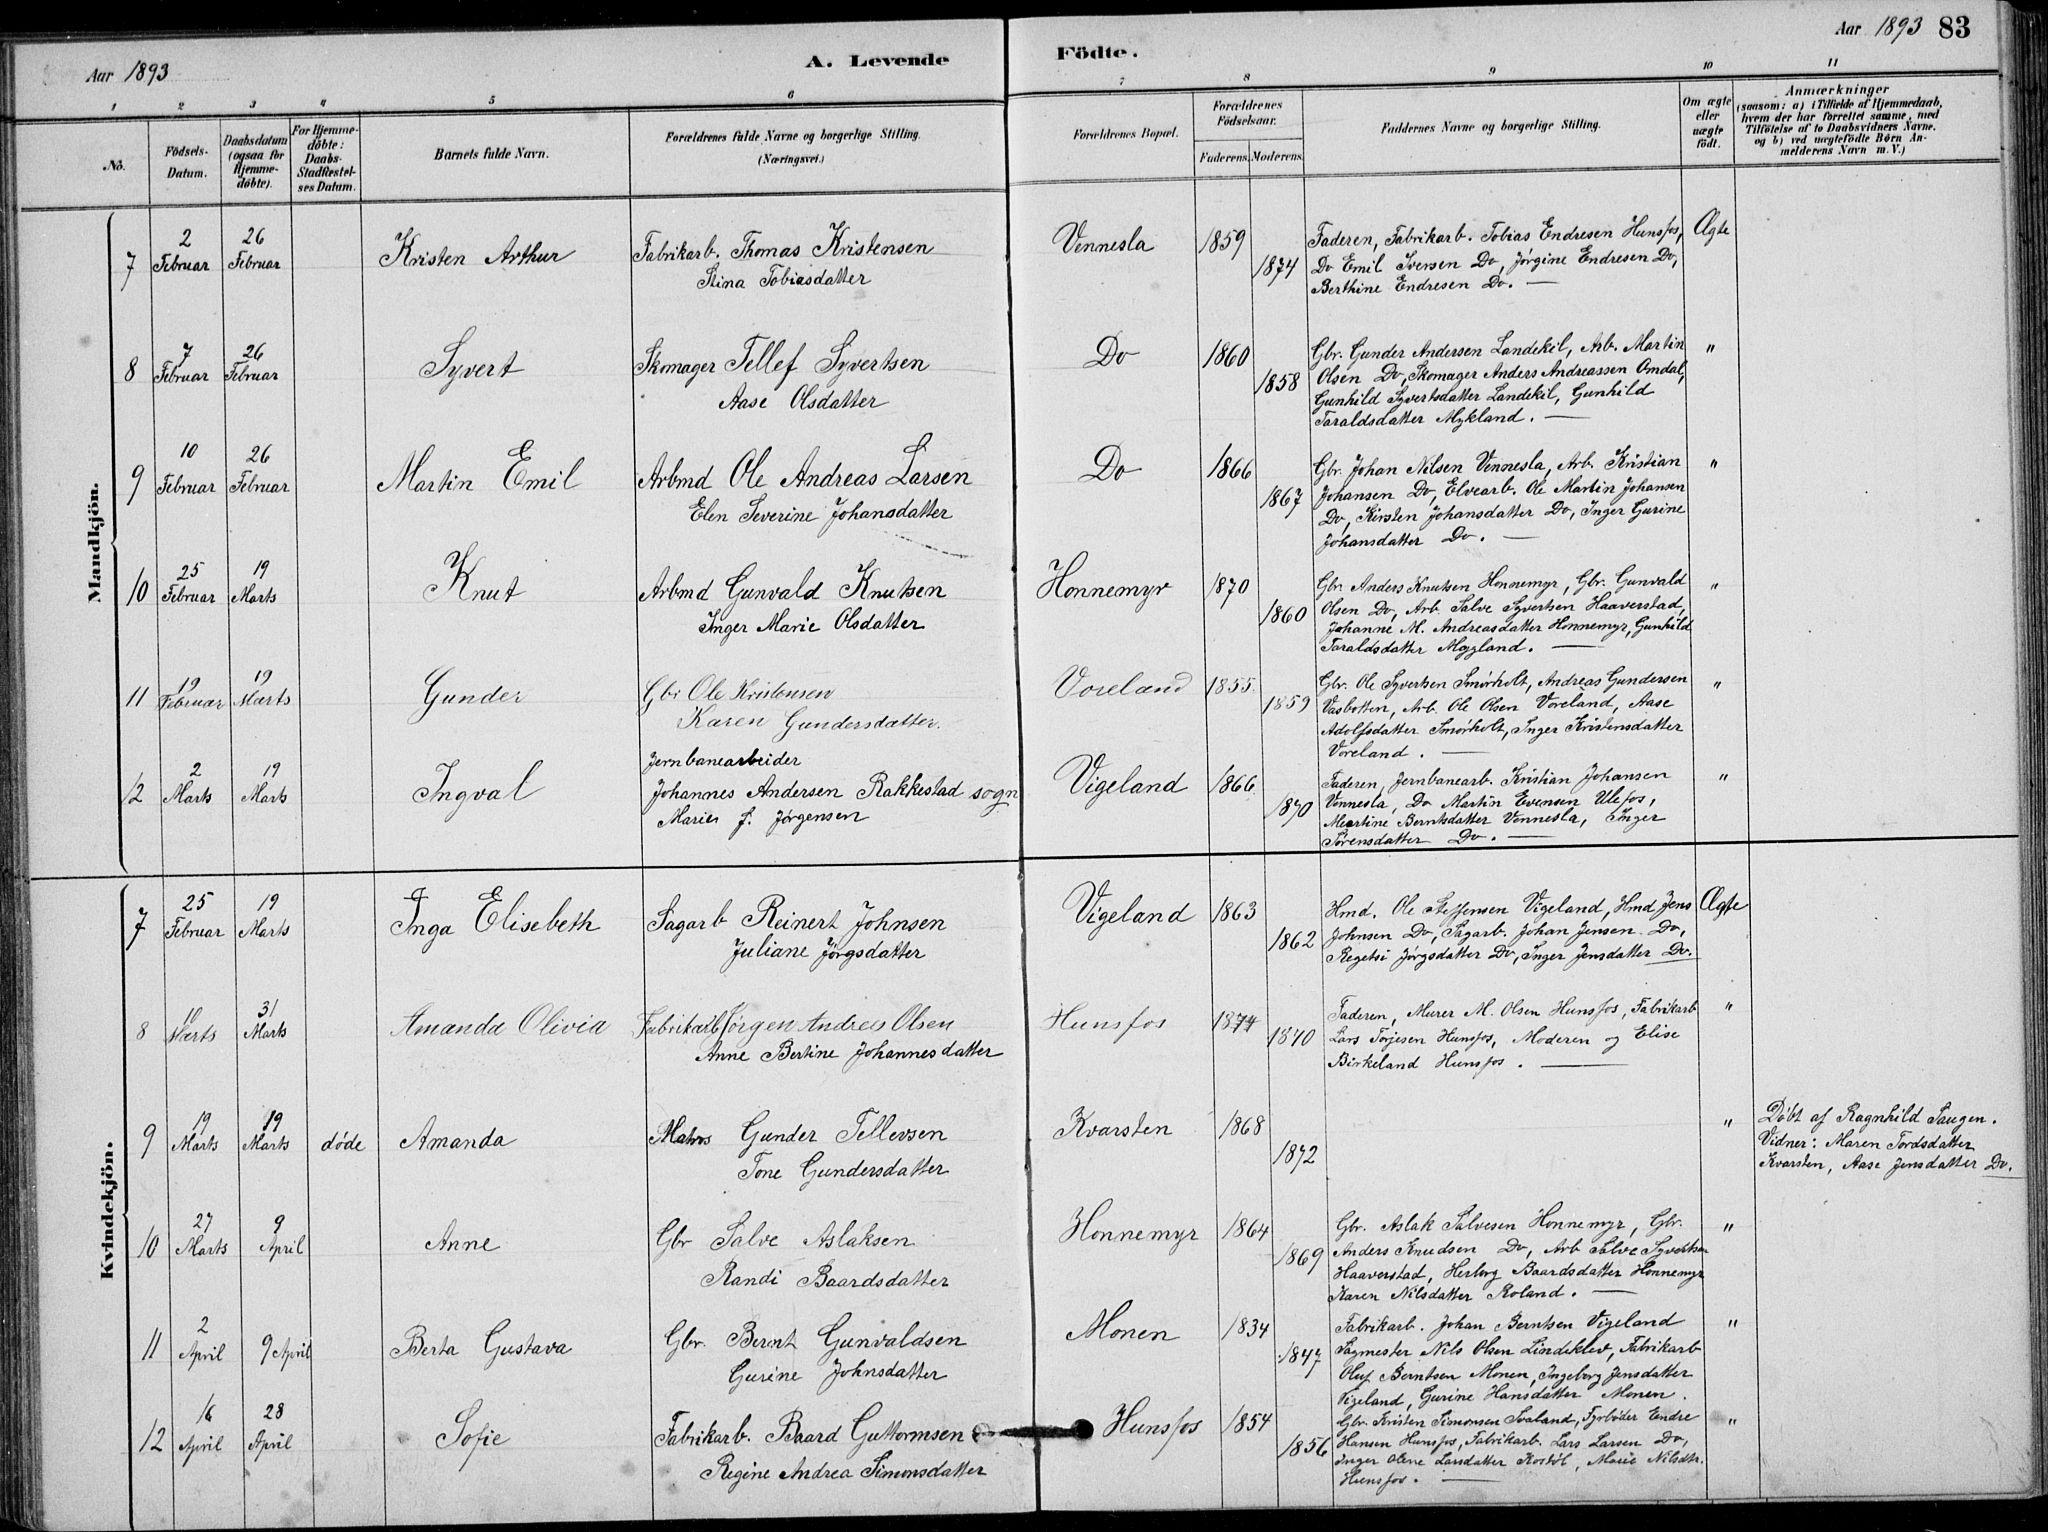 Aar 1893
A. Levende Födte.
Aar 1893 83
1 2 3 4 5 6 7 8 9 10 11
No.
Födsels-Datum.
Daabsdatum (ogsaa for Hjemmedöbte).
For Hjemmedöbte: Daabs-Stadfestelses Datum.
Barnets fulde Navn.
Forældrenes fulde Navne og borgerlige Stilling. (Næringsvei.)
Forældrenes Bopæl.
Forældrenes Födselsaar.
Faderens. Moderens.
Faddernes Navne og borgerlige Stilling.
Om ægte eller uægte födt.
Anmærkninger
(saasom: a) i Tilfælde af Hjemmedaab,
hvem der har forrettet samme, med
Tilföielse af to Daabsvidners Navne.
og b) ved uægtefödte Börn An-
melderens Navn m. V.)
Mandkjön.
7 2 Februar 26 Februar Kristen Arthur
Fabrikarb. Thomas Kristensen
Stina Tobiasdatter
Vennesla 1859 1874
Faderen, Fabrikarb. Tobias Endresen Hunsfos,
Do Emil Iversen Do, Jørgine Endresen Do,
Berthine Endresen Do. —
Ægte
8 7 Februar 26 Februar Syvert
Skomager Tellef Syvertsen
Aase Olsdatter
Do 1860 1858
Gbr. Gunder Andersen Landekil, Arb. Martin
Olsen Do, Skomager Anders Andreassen Omdal,
Gunhild Syvertsdatter Landekil, Gunhild
Taraldsdatter Mykland. —
"
9 10 Februar 26 Februar Martin Emil
Arbmd Ole Andreas Larsen
Elen Severine Johansdatter
Do 1866 1867
Gbr. Johan Nilsen Vennesla, Arb. Kristian
Johansen Do, Elvearb. Ole Martin Johansen
Do, Kirsten Johansdatter Do, Inger Gurine
Johansdatter Do. —
"
10 25 Februar 19 Marts Knut
Arbmd Gunvald Knutsen
Inger Marie Olsdatter
Honnemyr 1870 1860
Gbr. Anders Knutsen Honnemyr, Gbr. Gunvald
Olsen Do, Arb. Salve Syvertsen Haaverstad,
Johanne M. Andreasdatter Honnemyr, Gunhild
Taraldsdatter Moyland. —
"
11 19 Februar 19 Marts Gunder
Gbr Ole Kristensen
Karen Gundersdatter.
Voreland 1855 1859
Gbr. Ole Syvertsen Smørholt, Andreas Gundersen
Vasbotten, Arb. Ole Olsen Voreland, Aase
Adolfsdatter Smørholt, Inger Kristensdatter
Voreland. —
"
12 2 Marts 19 Marts Ingval
Jernbanearbeider
Johannes Andersen Rakkestad sogn
Marie J. Jørgensen
Vigeland 1866 1870
Faderen, Jernbanearb. Kristian Johansen
Vennesla, Do Martin Evensen Ulefos,
Martine Berntsdatter Vennesla, Inger
Sørensdatter Do. —
"
Kvindekjön.
7 25 Februar 19 Marts Inga Elisebeth
Sagarb Reinert Johnsen
Juliane Jørgsdatter
Vigeland 1863 1862
Hmd. Ole Steffensen Vigeland, Hmd Jens
Johnsen Do, Sagarb. Johan Jensen Do,
Regetsi Jørgsdatter Do, Inger Jensdatter Do.
Ægte
8 Marts 31 Marts Amanda Olivia
Fabrikarb Jørgen Andreas Olsen
Anne Bertine Johannesdatter
Hunsfos 1874 1870
Faderen, Murer M. Olsen Hunsfos, Fabrikarb
Lars Torjesen Hunsfos, Moderen og Elise
Birkeland Hunsfos. —
"
9 19 Marts 19 Marts døde Amanda
Matros Gunder Tellevsen
Tone Gundersdatter
Kvarsten 1868 1872
"
Døbt af Ragnhild Saugen.
Vidner: Maren Tordsdatter
Kvarsten, Aase Jensdatter Do.
10 27 Marts 9 April Anne
Gbr Salve Aslaksen
Randi Baardsdatter
Honnemyr 1864 1869
Gbr. Aslak Salvesen Honnemyr, Gbr.
Anders Knudsen Do, Arb Salve Syvertsen
Haaverstad, Herborg Baardsdatter Honnemyr
Karen Nilsdatter Roland. —
"
11 2 April 9 April Berta Gustava
Gbr. Bernt Gunvaldsen
Gurine Johnsdatter
Monen 1834 1847
Fabrikarb. Johan Berntsen Vigeland
Sagmester Nils Olsen Lindeklev, Fabrikarb
Oluf Berntsen Monen, Ingeborg Jensdatter
Vigeland, Gurine Hansdatter Monen.
"
12 16 April 28 April Sofie
Fabrikarb. Baard Guttormsen
Regine Andrea Simonsdatter
Hunsfos 1854 1856
Gbr. Kristen Simonsen Svaland, Fyrbøder Endre
Hansen Hunsfos, Fabrikarb. Lars Larsen Do,
Inger Olene Larsdatter Kostøl, Marie Nilsdtr.
Hunsfos. —
"